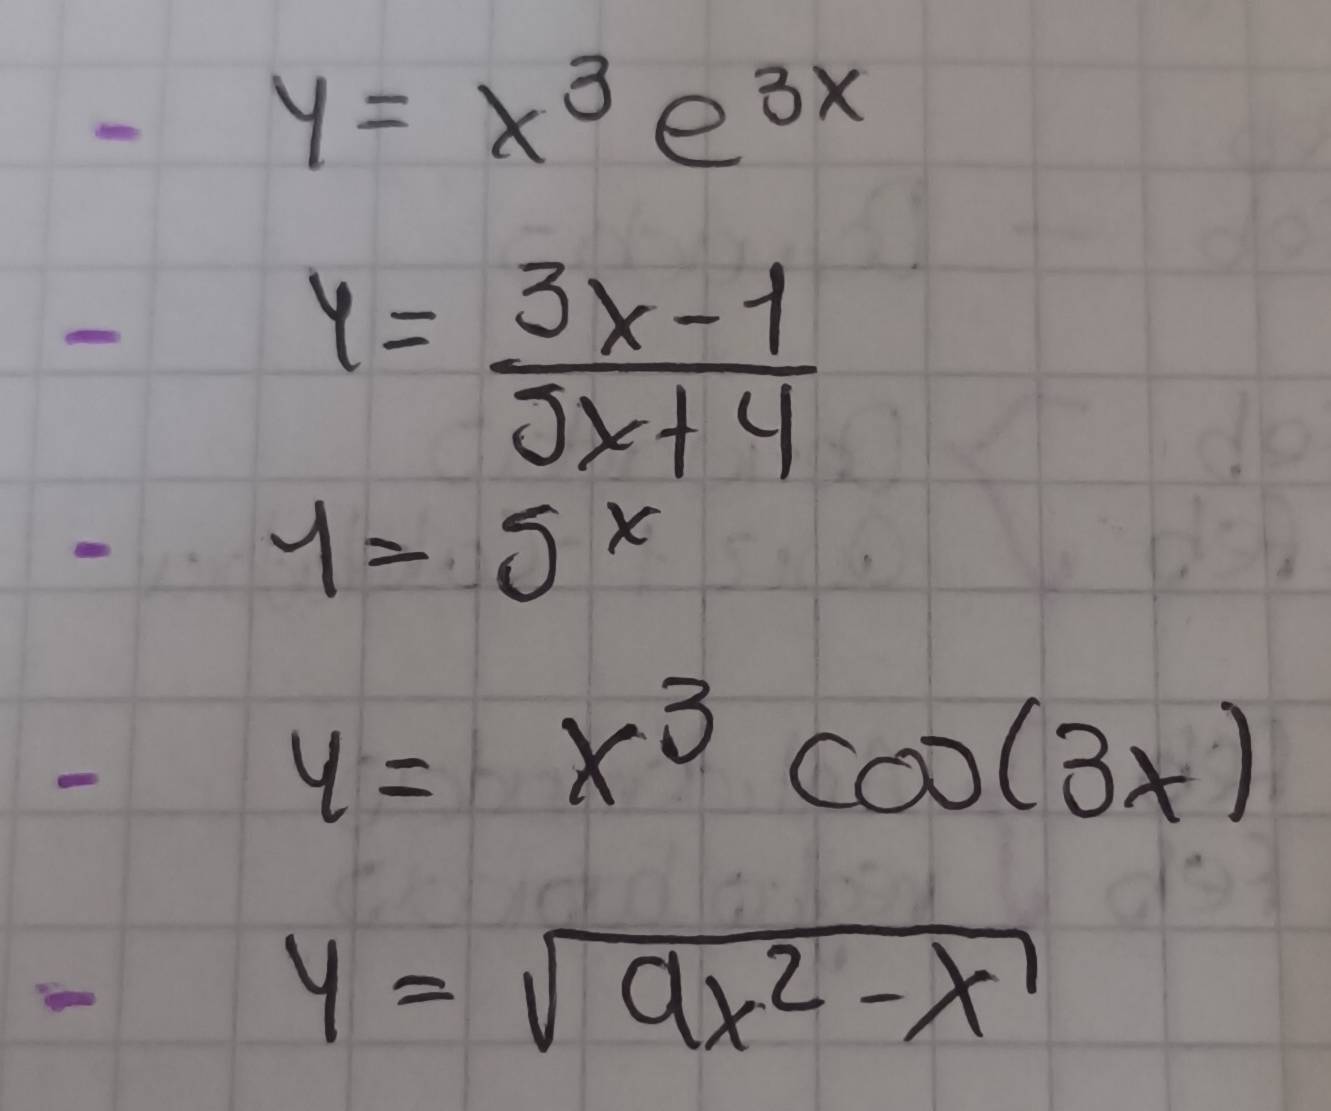 - y = x³ e^{3x}
- y = \frac{3x-1}{5x+4}
- y = 5^x
- y = x³ cos(3x)
- y = \sqrt{ax²-x}